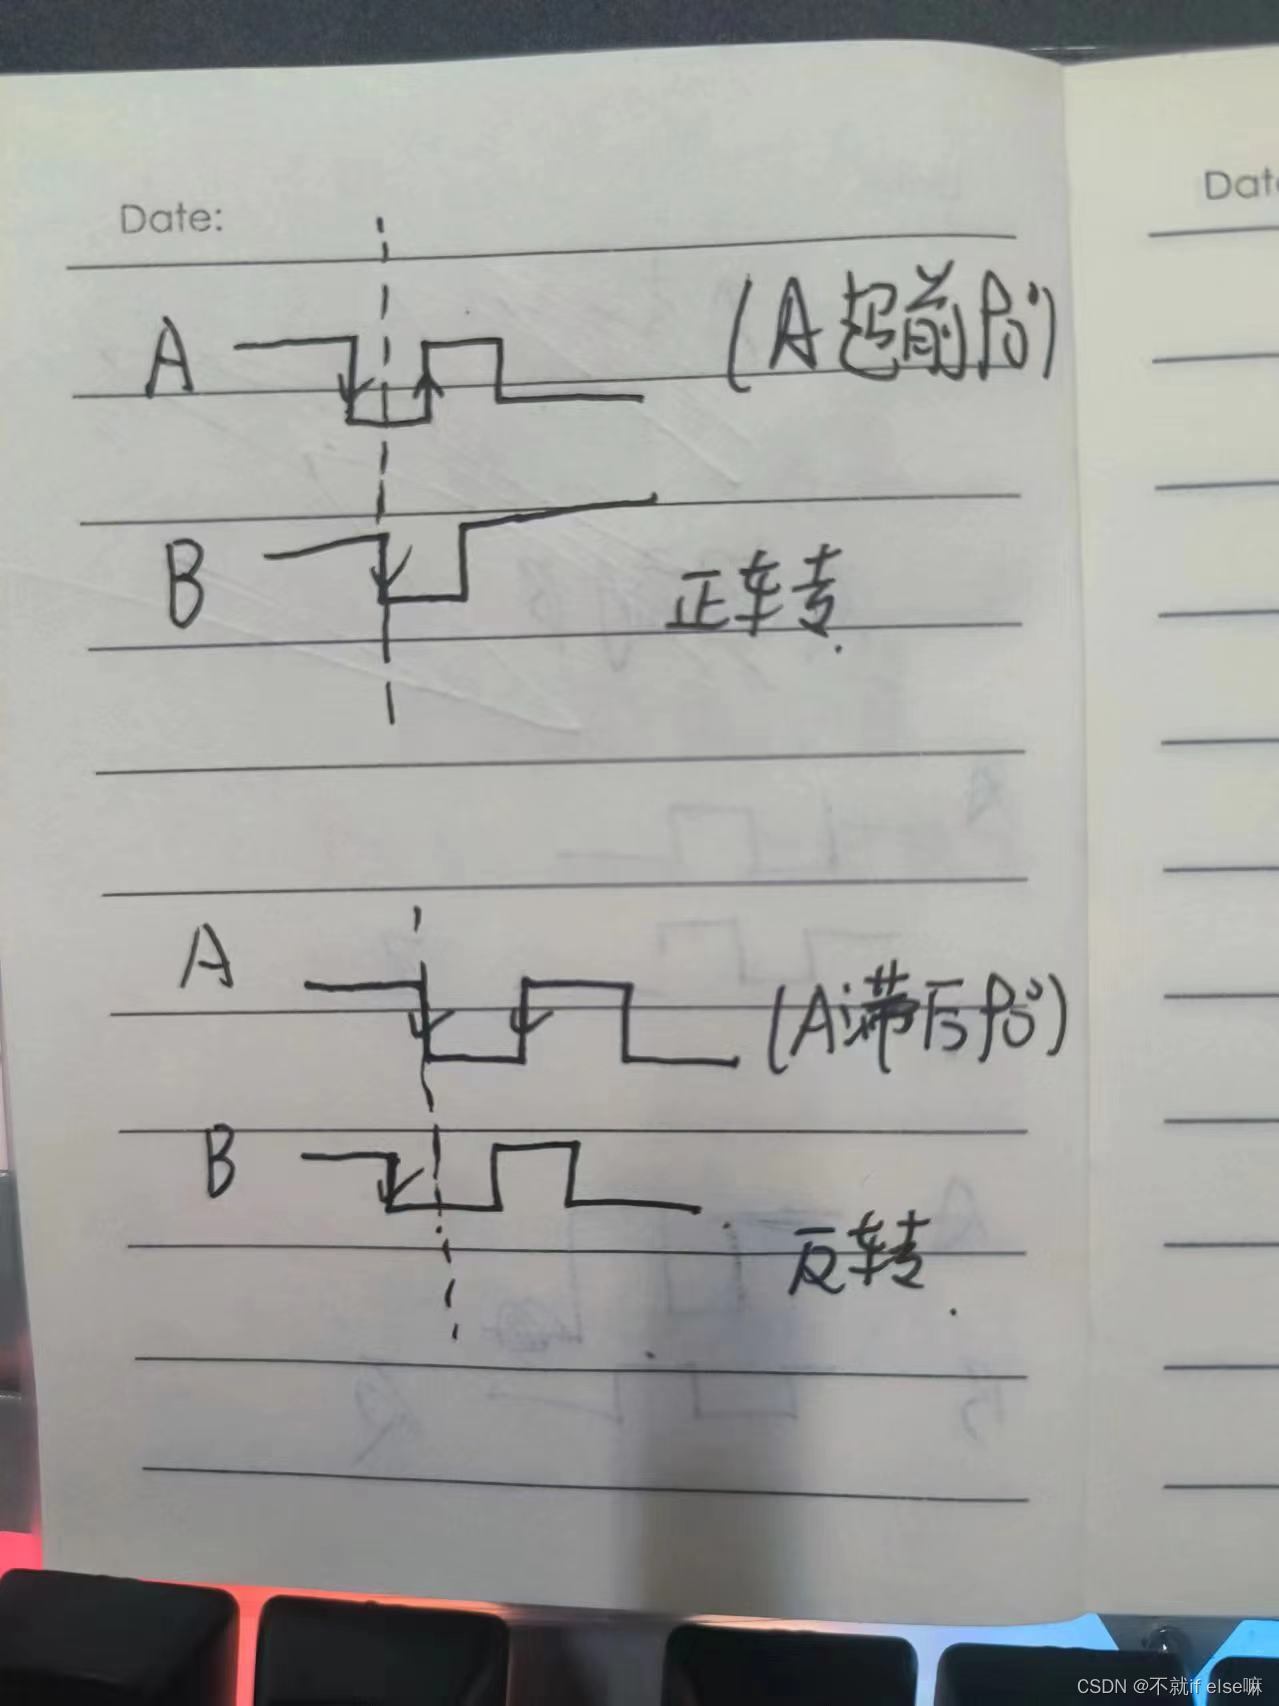 Date:
Date
A
(A超前90°)
B
正转.
A
(A滞后90°)
B
反转.
CSDN @不就if else嘛